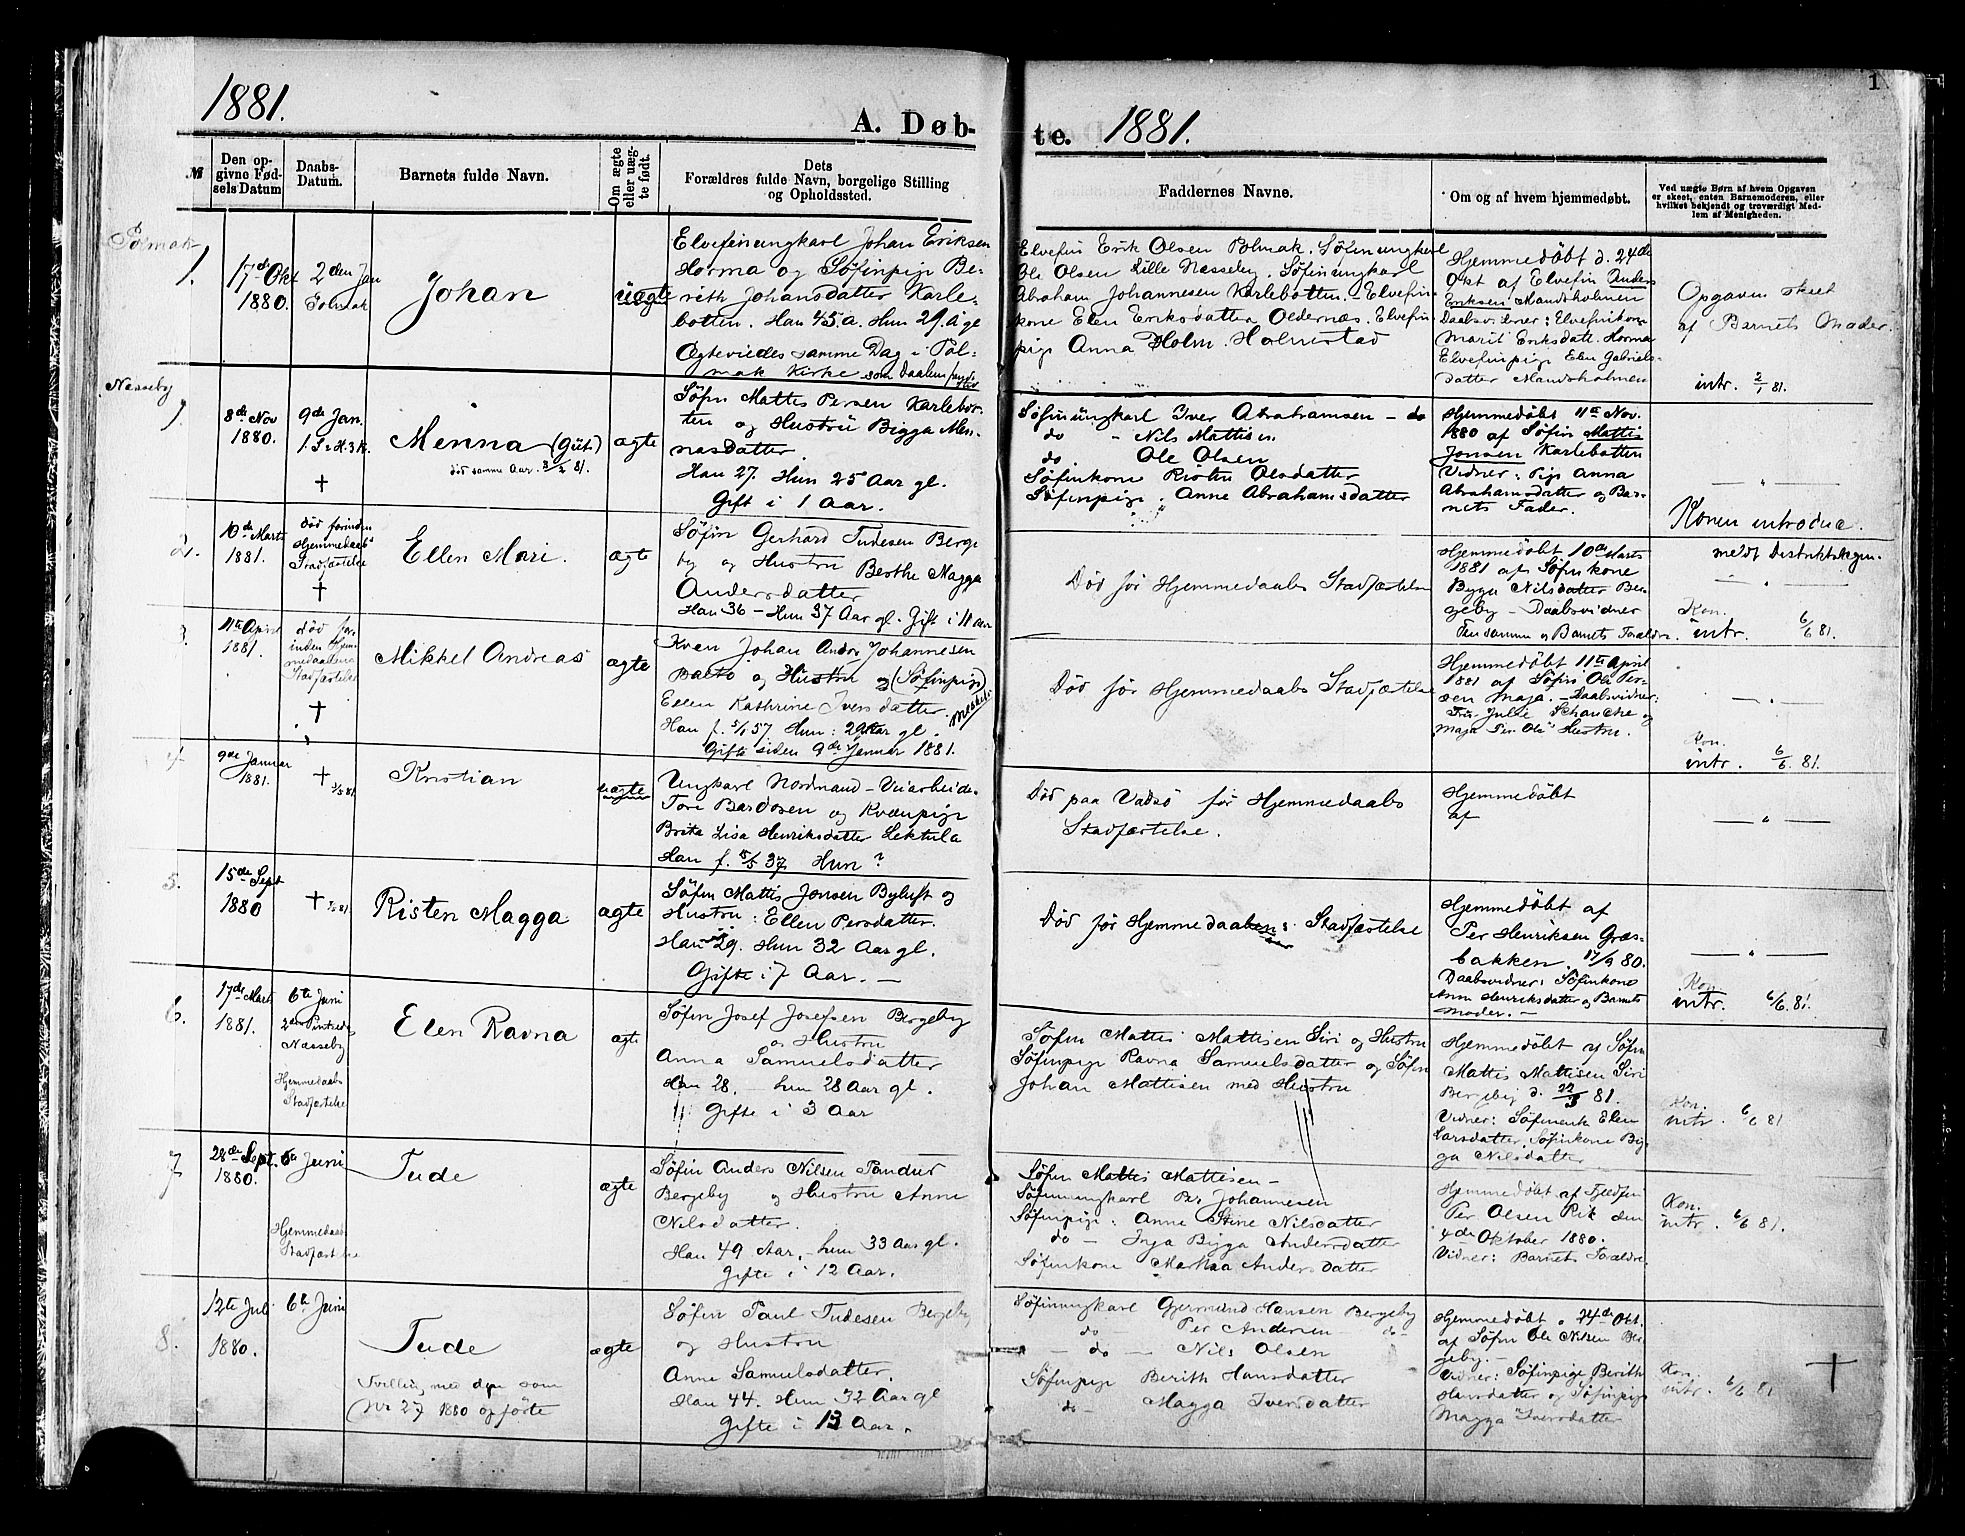 1881.
A. Døb-
te.
1881.
1
№
Den op-
givne Fød-
sels Datum
Daabs-
Datum.
Barnets fulde Navn.
Om ægte
eller uæg-
te født.
Dets
Forældres fulde Navn, borgelige Stilling
og Opholdssted.
Faddernes Navne.
Om og af hvem hjemmedøbt.
Ved uægte Børn af hvem Opgaven
er skeet, enten Barnemoderen, eller
hvilket bekjendt og troværdigt Med-
lem af Menigheden.
Polmak
1.
17de Okt
1880.
2den Jan
Polmak
Johan
uægte
Elvefinungkarl Johan Eriksen
Horma og Söfinpige Be-
reth Johansdatter Karle-
botten. Han 45. a. Hun 29. a gl
Ægteviedes samme Dag i Pol-
mak Kirke som Daaben
Elvefin Erik Olsen Polmak. Söfinungkarl
Ole Olsen Lille Nesseby. Söfinungkarl
Abraham Johannesen Karlebotten. - Elvefin-
kone Elen Eriksdatter Oldernæs. Elvefin-
pige Anna Holm. Holmestad
Hjemmedöbt d. 24de
Okt af Elvefin Anders
Eriksen Mandsholmen
Daabsvidner: Elvefinkone
Marit Eriksdatt. Horma
Elvefinpige Elen Gabriels-
datter Mandsholmen
Opgaven skeet
af Barnets Moder.
intr. 2/1 81.
Nesseby
1.
8de Nov
1880.
9de Jan.
1. S. e. H. 3 K.
†
Menna (Gut)
död samme Aar. 3/2 81.
ægte
Söfin Mattis Persen Karlebot-
ten og Hustru Bigga Men-
nasdatter.
Han 27. Hun 25 Aar gl.
Gift i 1 Aar.
Söfinungkarl Iver Abrahamsen - do
do - Nils Mattisen
do. Ole Olsen
Söfinkone Risten Olsdatter
Söfinpige. Anne Abrahamsdatter
Hjemmedöbt 11te Nov.
1880 af Söfin Mattis
Jonsen Karlebotten
Vidner: Pige Anna
Abrahamsdatter og Bar-
nets Fader.
— " —
Konen introduc.
2.
10de Marts
1881.
död forinden
Hjemmedaabs
Stadfæstelse
†
Ellen Mari.
ægte
Söfin Gerhard Tudesen Berge
by og Hustru Berthe Magga
Andersdatter
Han 36 - Hun 37 Aar gl. Gift i 11 aar
Död før Hjemmedaabs Stadfæstelse
Hjemmedöbt 10de Marts
1881 af Söfinkone
Bigga Nilsdatter Ber-
geby - Daabsvidner
Den samme og Barnets Foræld.
meldt Distriktslægen.
— " —
Kon.
intr. 6/6 81.
3.
11te April
1881.
död for-
inden Hjem-
medaabens
Stadfæstelse
†
Mikkel Andreas
ægte
Kven Johan Andr. Johannesen
Balto og Hustru (Söfinpige)
Ellen Kathrine Iversdatter.
Han f. 5/1 57 Hun: 29 Aar gl.
Gifte siden 9de Januar 1881.
Död før Hjemmedaabs Stadfæstelse
Hjemmedöbt 11te April
1881 af Söfin Ole Per-
sen Maja. - Daabsvidner:
Frk. Julie Schanche og
Maja Per Ols' Hustru.
— " —
Kon.
intr. 6/6. 81.
4
9de Januar
1881.
†
Kristian
uægte
Ungkarl Nordmand - Veiarbeide
Tore Bardosen og Kvænpige
Brita Lisa Henriksdatter Lektula
Han f. 5/5 37 Hun ?
Död paa Vadsö før Hjemmedaabs
Stadfæstelse.
Hjemmedöbt
af
— " —
5.
15de Sept
1880
†
Risten Magga
ægte
Söfin Mattis Jonsen Byluft og
Hustru: Ellen Persdatter.
Han 29. Hun 32 Aar gl.
Gifte i 7 Aar. —
Död før Hjemmedaabens Stadfæstelse
Hjemmedöbt af
Per Henriksen Græs-
bakken. 17/9 80.
Daabsvidner: Söfinkone
Anne Henriksdatter og Barnets
Moder. —
— " —
Kon.
intr. 6/6. 81.
6.
17de Marts
1881.
6te Juni
2den Pintsedag
Nesseby
Hjemmedaabs
Stadfæstelse
Elen Ravna
ægt
Söfin Josef Josefsen Bergeby
og Hustru
Anna Samuelsdatter
Han 28. - hun 28 Aar gl.
Gifte i 3 Aar
Söfin Mattis Mattisen Siri og Hustru
Söfinpige Ravna Samuelsdatter og Söfin
Johan Mattisen med Hustru
Hjemmedöbt af Söfin
Mattis Mattisen Siri
Bergeby d. 22/3 81.
Vidner: Söfinenk Elen
Larsdatter. Söfinkone Big-
ga Nilsdatter
Kon.
intr. 6/6 81
7
28de Sept.
1880.
6te Juni
Hjemmedaabs
Stadfæstelse
Tude
ægte
Söfin Anders Nilsen Pandur
Bergeby og Hustru Anne
Nilsdatter.
Han 49 Aar. - hun 33 Aar gl.
Gifte i 12 Aar.
Söfin Mattis Mattisen -
Söfinungkarl Per Johannesen
Söfinpige: Anne Stine Nilsdatter
do - Inga Bigga Andersdatter
Söfinkone Marthaa Andersdatter
Hjemmedöbt af Fjeldfin
Per Olsen Rik den
4de Oktober 1880.
Vidner: Barnets Forældre.
Kon.
intr. 6/6 81.
8.
12te Juli
1880.
6te Juni
Tude
Tvilling med den som
Nr 27 1880 opførte
ægte
Söfin Paul Tudesen Bergeby
og Hustru
Anne Samuelsdatter.
Han 44. Hun 32 Aar gl
Gifte i 13 Aar.
Söfinungkarl Gjermund Hansen Bergeby
do — Per Andersen — do-
— do — Nils Olsen
Söfinpige Berith Hansdatter
do - Magga Iversdatter
Hjemmedöbt d 24de Okt.
af Söfin Ole Nilsen Ber-
geby. —
Vidner: Söfinpige Berith
Hansdatter og Söfinpige
Magga Iversdatter
Kon.
intr. 6/6 81
†